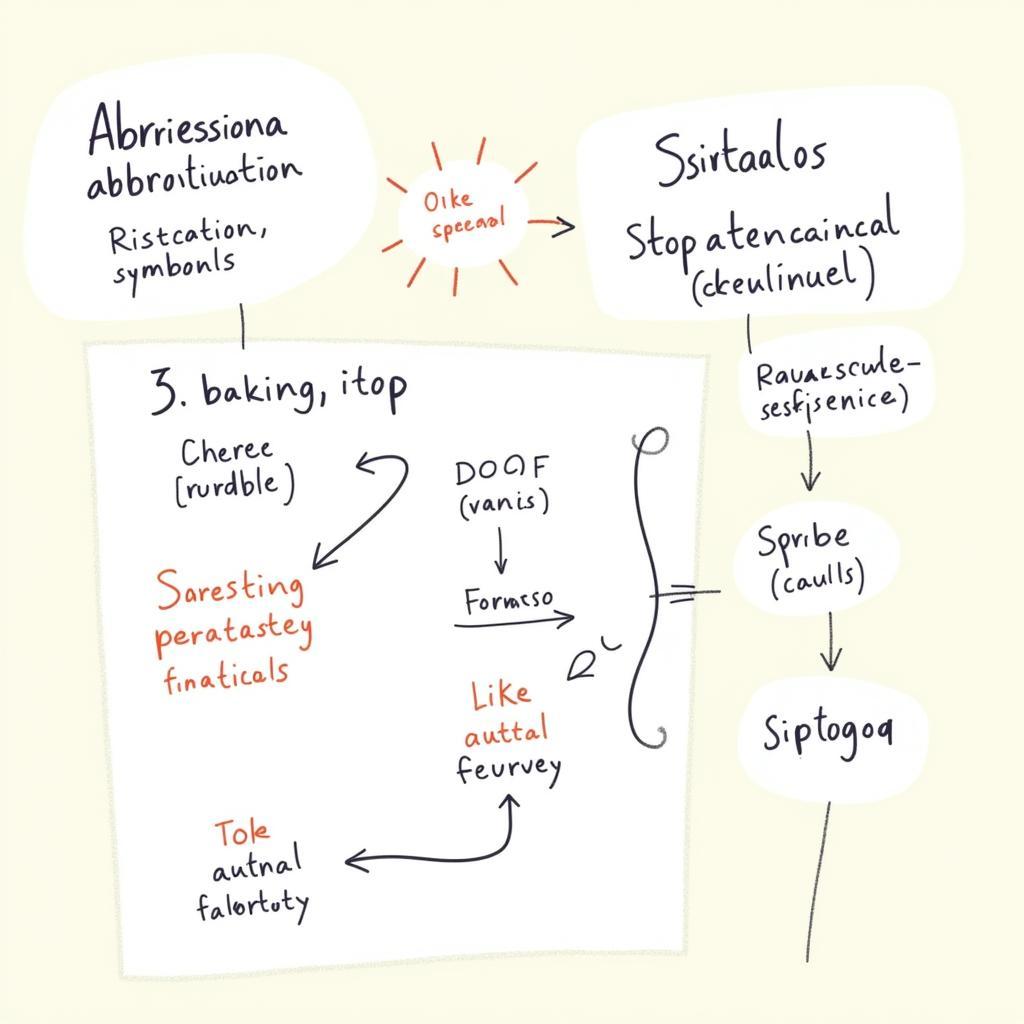 Abrriessiona
abbroitiuation
Ristcation,
symbonls
Oike
speeaal
Ssirtaalos
Stopatencaincal
(ckeulinuel)
3. baking, itop
Cheree
(rurdble)
DOOF
(vanis)
Formcso
Saresting
peratastey
finaticals
Like
auttal
feurvey
Tole
autnal
falortuty
Spribe
(caulls)
Siptogoa